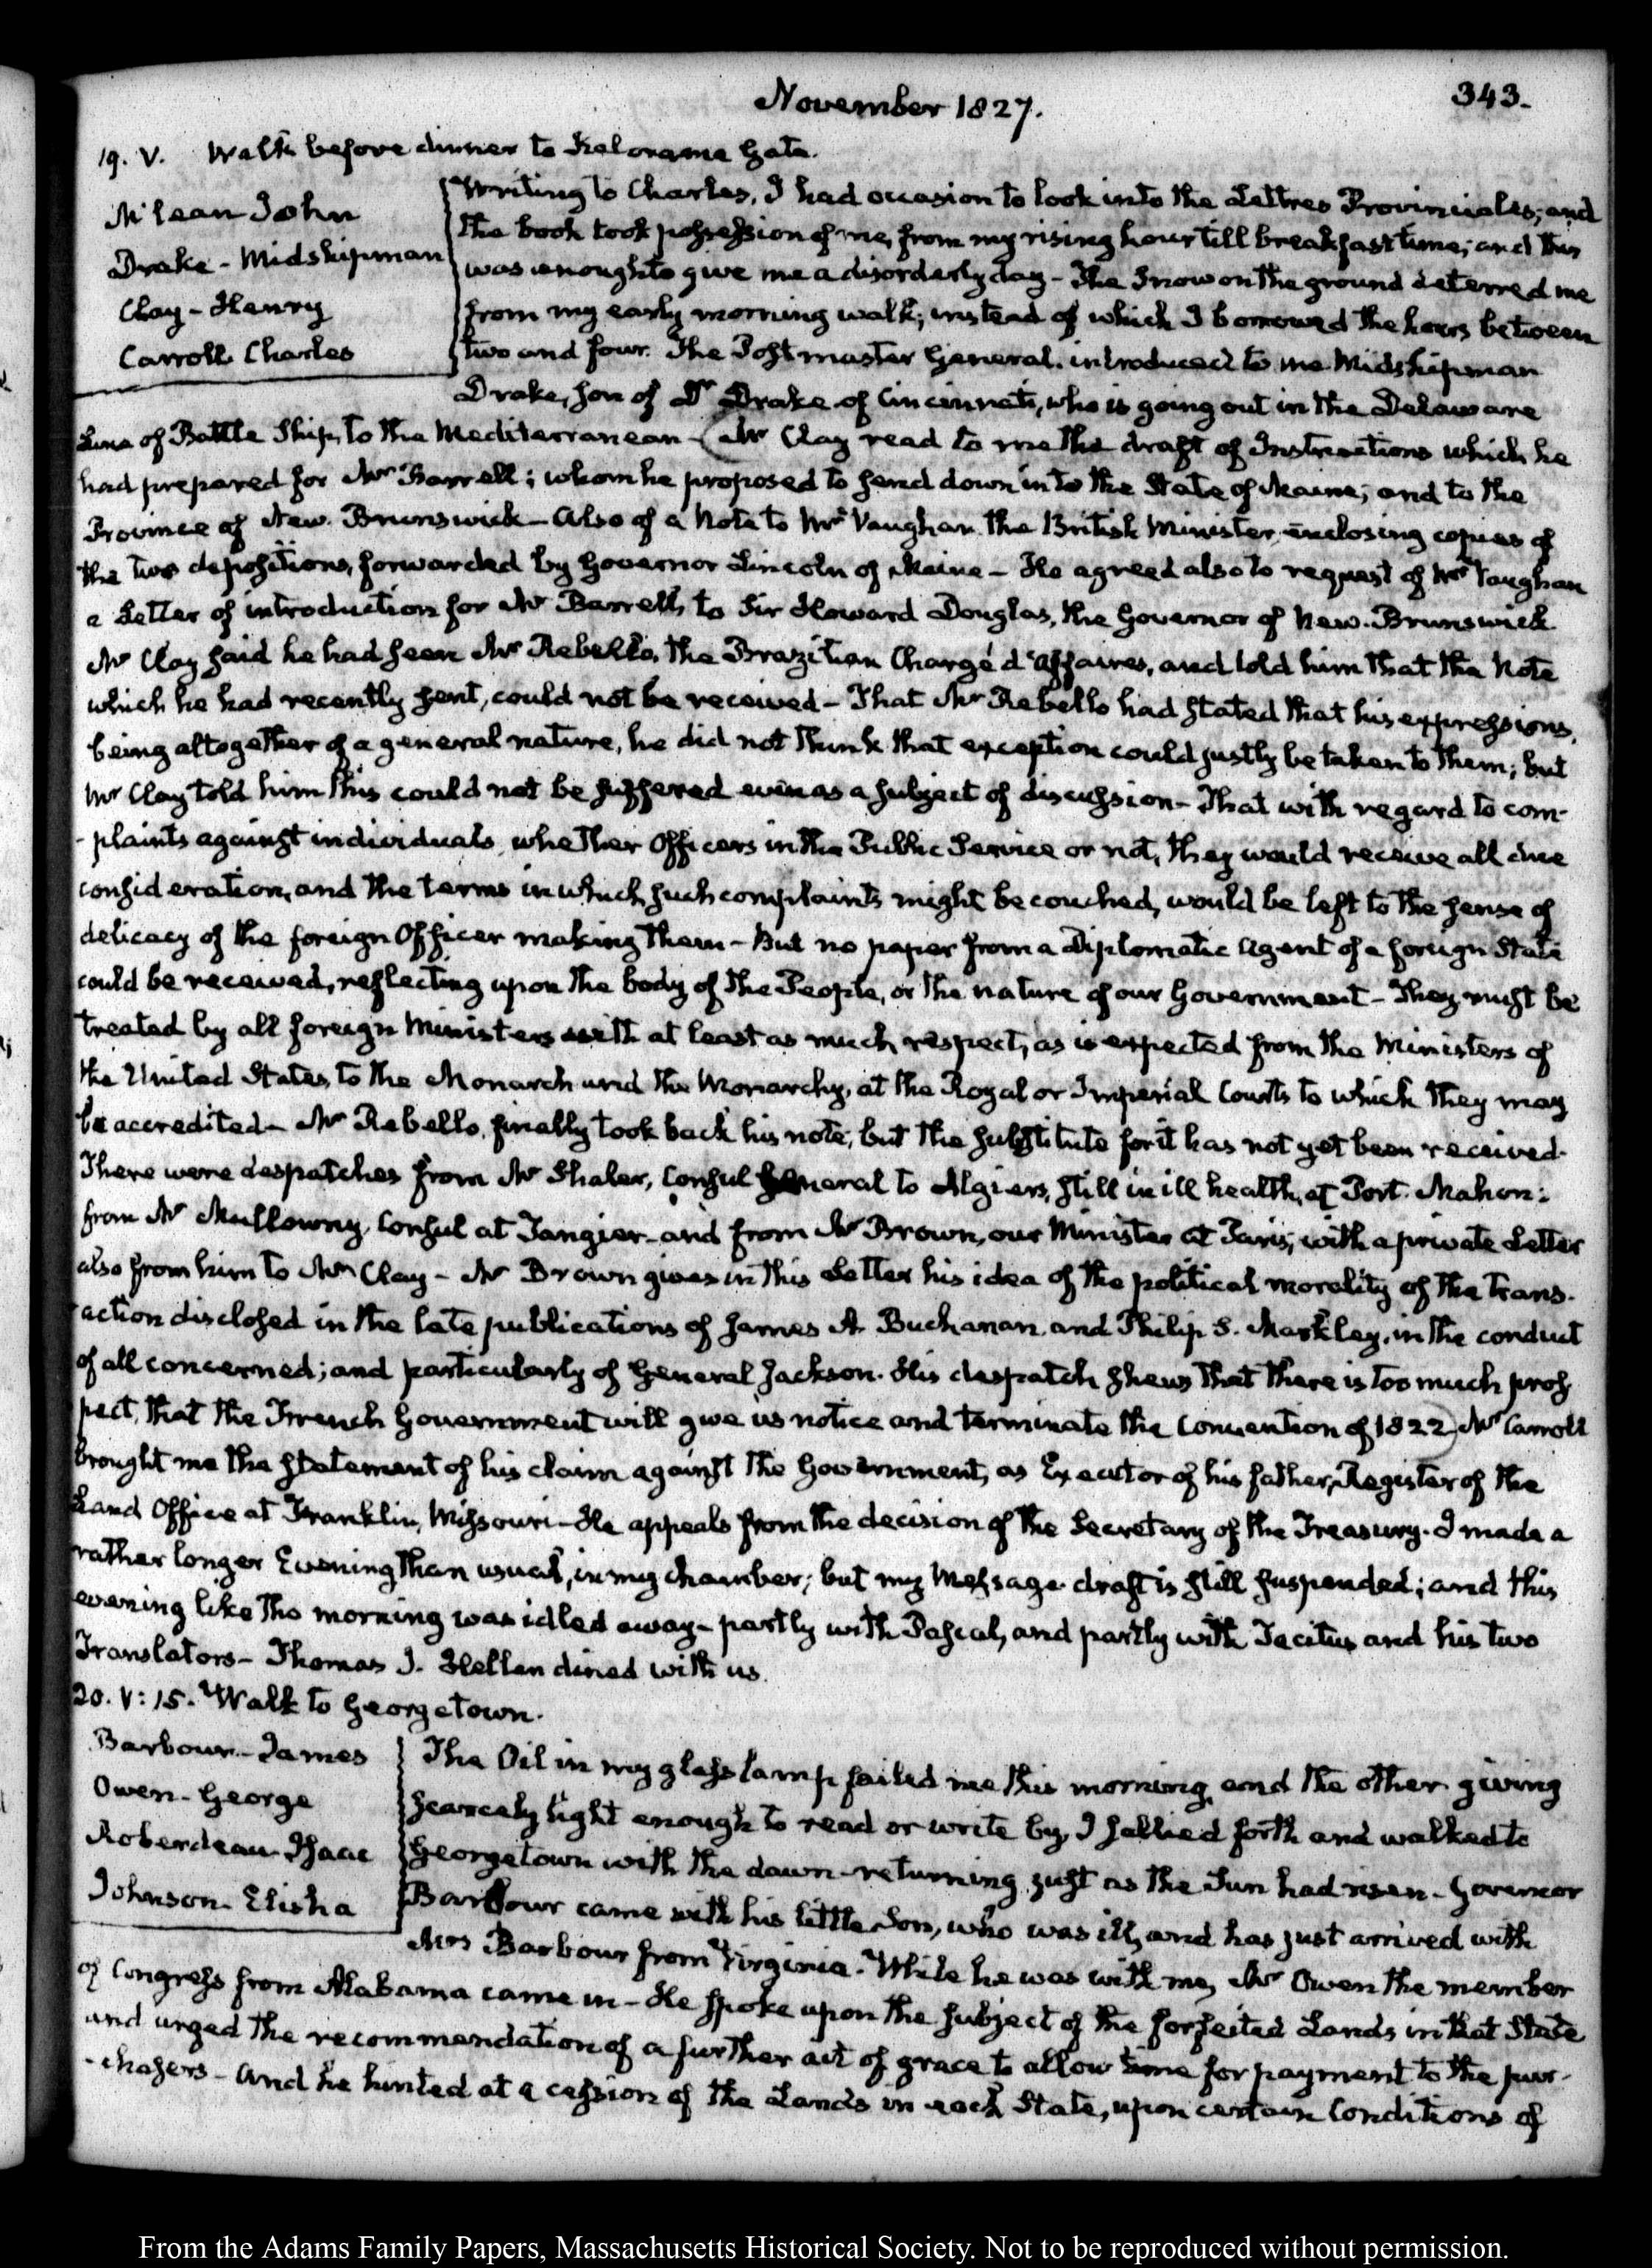 November 1827.
343.
19. V. Walk before dinner to Kalorama Gate.
McLean John
Drake - Midshipman
Clay - Henry
Carroll Charles
Writing to Charles, I had occasion to look into the Lettres Provinciales; and
the book took possession of me, from my rising hour till breakfast time; and this
was enough to give me a disorderly day - The Snow on the ground deterred me
from my early morning walk; instead of which I borrowed the hours between
two and four. The Postmaster General. introduced to me Midshipman
Drake, son of Dr Drake of Cincinnati, who is going out in the Delaware
Line of Battle Ship, to the Mediterranean - Mr Clay read to me the draft of Instructions which he
had prepared for Mr Barrell; whom he proposed to send down into the State of Maine; and to the
Province of New. Brunswick - Also of a Note to Mr Vaughan the British Minister enclosing copies of
the two depositions, forwarded by Governor Lincoln of Maine - He agreed also to request of Mr Vaughan
a Letter of introduction for Mr Barrell, to Sir Howard Douglas, the Governor of New. Brunswick.
Mr Clay said he had seen Mr Rebello, the Brazilian Chargé d'Affaires, and told him that the Note
which he had recently sent, could not be received - That Mr Rebello had stated that his expressions,
being altogether of a general nature, he did not think that exception could justly be taken to them; but
Mr Clay told him this could not be suffered even as a subject of discussion - That with regard to com-
-plaints against individuals, whether Officers in the Public Service or not, they would receive all due
consideration, and the terms in which such complaints might be couched, would be left to the sense of
delicacy of the foreign Officer making them - But no paper from a Diplomatic Agent of a foreign State
could be received, reflecting upon the body of the People, or the nature of our Government - They must be
treated by all foreign Ministers with at least as much respect, as is expected from the Ministers of
the United States to the Monarch and the Monarchy, at the Royal or Imperial Courts to which they may
be accredited - Mr Rebello, finally took back his note; but the substitute for it has not yet been received.
There were despatches from Mr Shaler, Consul General to Algiers, still in ill health, at Port. Mahon:
from Mr Mullowny, Consul at Tangier - and from Mr Brown, our Minister at Paris; with a private Letter
also from him to Mr Clay - Mr Brown gives in this Letter his idea of the political morality of the trans-
action disclosed in the late publications of James A. Buchanan and Philip S. Markley, in the conduct
of all concerned; and particularly of General Jackson. His despatch shews that there is too much pros
pect, that the French Government will give us notice and terminate the Convention of 1822, Mr Carroll
brought me the statement of his claim against the Government, as Executor of his father, Register of the
Land Office at Franklin, Missouri - He appeals from the decision of the Secretary of the Treasury. I made a
rather longer Evening than usual, in my chamber; but my Message draft is still suspended; and this
evening like the morning was idled away - partly with Pascal, and partly with Tacitus and his two
Translators - Thomas J. Hellen dined with us.
20. V: 15. Walk to Georgetown.
Barbour - James
Owen - George
Roberdeau Isaac
Johnson - Elisha
The Oil in my glass lamp failed me this morning, and the other giving
scarcely light enough to read or write by, I sallied forth and walked to
Georgetown with the dawn - returning just as the Sun had risen - Governor
Barbour came with his little Son, who was ill, and has just arrived with
Mrs Barbour from Virginia. While he was with me, Mr Owen the member
of Congress from Alabama came in - He spoke upon the subject of the forfeited Lands in that State
and urged the recommendation of a further act of grace to allow time for payment to the pur-
-chasers - And he hinted at a cession of the Lands in each State, upon certain Conditions of
From the Adams Family Papers, Massachusetts Historical Society. Not to be reproduced without permission.